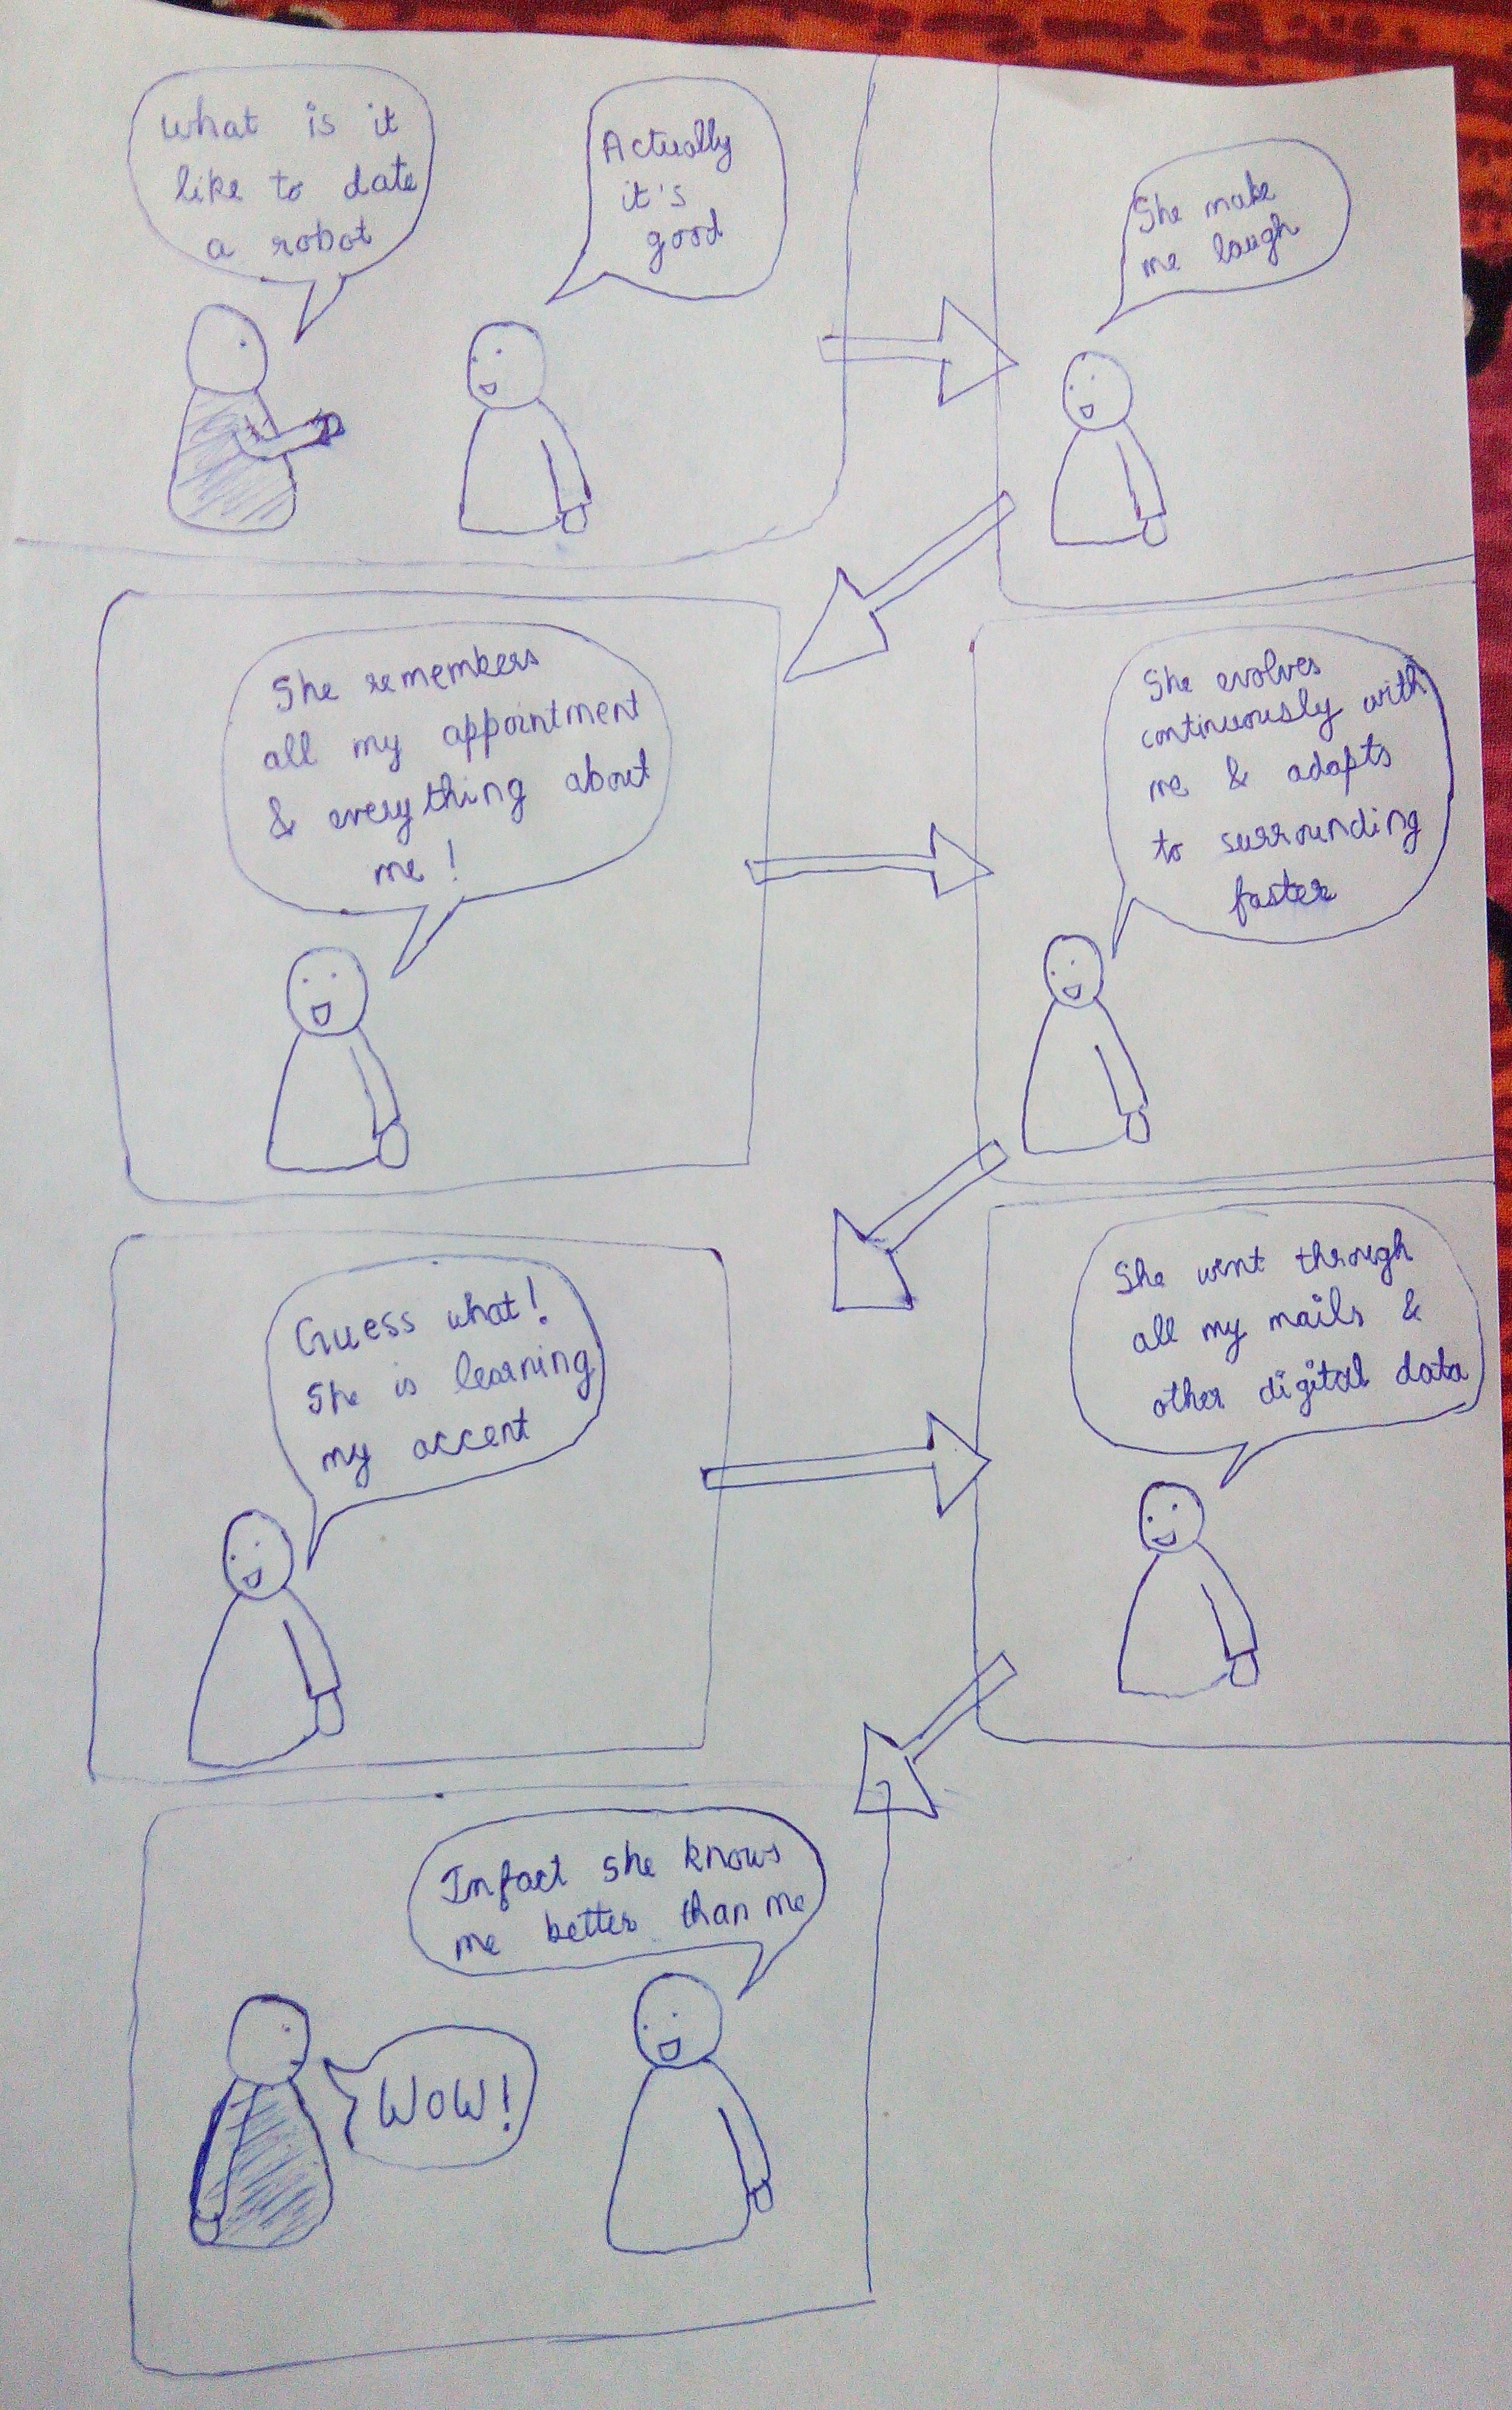 what is it
like to date
a robot
Actually
it's
good
She make
me laugh
She remembers
all my appointment
& everything about
me!
She evolves
continuously with
me & adapts
to surrounding
faster
Guess what!
She is learning
my accent
She went through
all my mails &
other digital data
Infact she knows
me better than me
WOW!